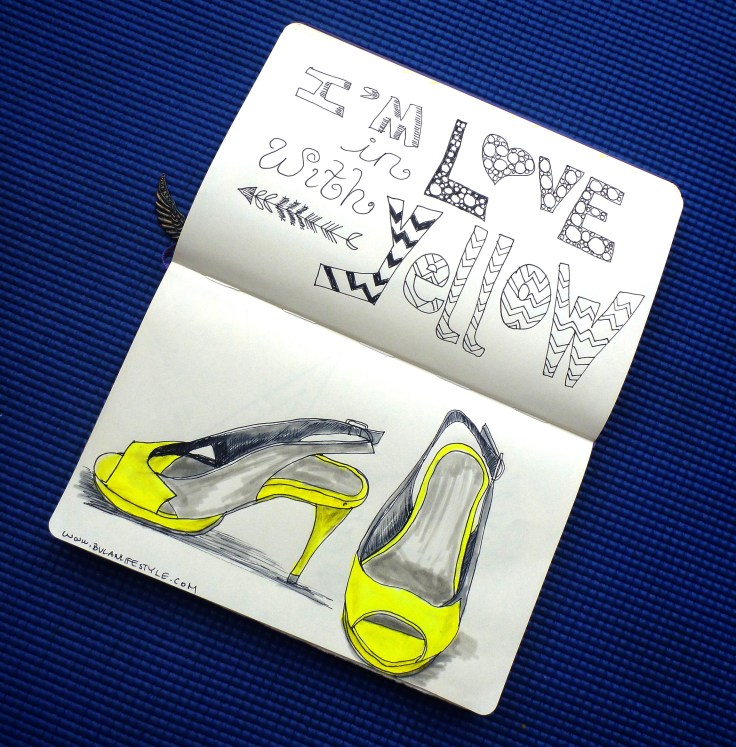 I'M LOVE
in
With
Yellow
www.BULANLIFESTYLE.COM